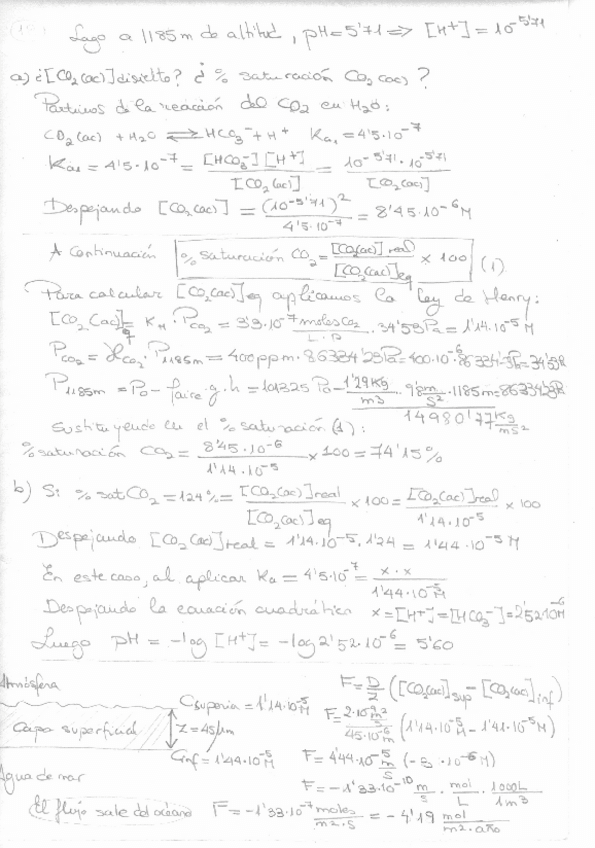 Lago a 1185 m de altitud, pH = 5'71 => [H+] = 10^-5'71
a) ¿[CO2(ac)] disuelto? ¿% saturación CO2(ac)?
Partimos de la reacción del CO2 en H2O:
CO2(ac) + H2O ⇌ HCO3^- + H+ Ka1 = 4'5·10^-7
Ka1 = 4'5·10^-7 = [HCO3^-][H+] / [CO2(ac)] = 10^-5'71·10^-5'71 / [CO2(ac)]
Despejando [CO2(ac)] = (10^-5'71)^2 / 4'5·10^-7 = 8'45·10^-6 M
A continuación % saturación CO2 = [CO2(ac)]real / [CO2(ac)]eq × 100 (1)
Para calcular [CO2(ac)]eq aplicamos la ley de Henry:
[CO2(ac)]eq = KH · PCO2 = 3'3·10^-7 moles CO2 / L·P · 34'53 Pa = 1'14·10^-5 M
PCO2 = XCO2 · P1185m = 400 ppm · 86334'23 Pa = 400·10^-6 · 86334'3 Pa = 34'53 Pa
P1185m = P0 - ρaire·g·h = 101325 Pa - 1'29 Kg/m3 · 9'8 m/s2 · 1185m = 86334'23 Pa
14980'77 Kg/ms2
Sustituyendo en el % saturación (1):
% saturación CO2 = 8'45·10^-6 / 1'14·10^-5 × 100 = 74'15 %
b) Si % sat CO2 = 124% = [CO2(ac)]real / [CO2(ac)]eq × 100 = [CO2(ac)]real / 1'14·10^-5 × 100
Despejando [CO2(ac)]real = 1'14·10^-5 · 1'24 = 1'44·10^-5 M
En este caso, al aplicar Ka = 4'5·10^-7 = x·x / 1'44·10^-5 M
Despejando la ecuación cuadrática x = [H+] = [HCO3^-] = 2'52·10^-6 M
Luego pH = -log [H+] = -log 2'52·10^-6 = 5'60
Atmósfera
F = D/Z ([CO2(ac)]sup - [CO2(ac)]inf)
Csuperior = 1'14·10^-5 M
Capa superficial
Z = 45 μm
F = 2·10^-9 m2/s / 45·10^-6 m (1'14·10^-5 M - 1'41·10^-5 M)
Cinf = 1'44·10^-5 M
F = 4'44·10^-5 m/s (-3·10^-6 M)
Agua de mar
F = -1'33·10^-10 m/s · mol/L · 1000L/1m3
El flujo sale del océano F = -1'33·10^-7 moles/m2·s = -4'19 mol/m2·año